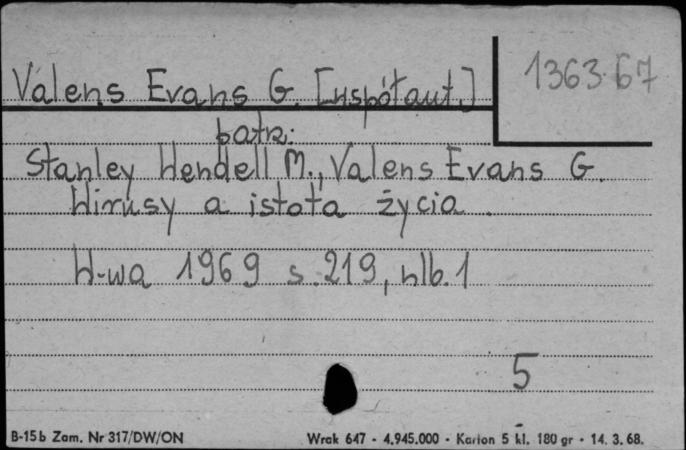 Valens Evans G. [współaut.]
1363-67
patrz:
Stanley Wendell M., Valens Evans G.
Wirusy a istota życia.
W-wa 1969 s. 219, nlb. 1
5
B-15b Zam. Nr 317/DW/ON Wrak 647 - 4.945.000 - Karton 5 kl. 180 gr - 14. 3. 68.